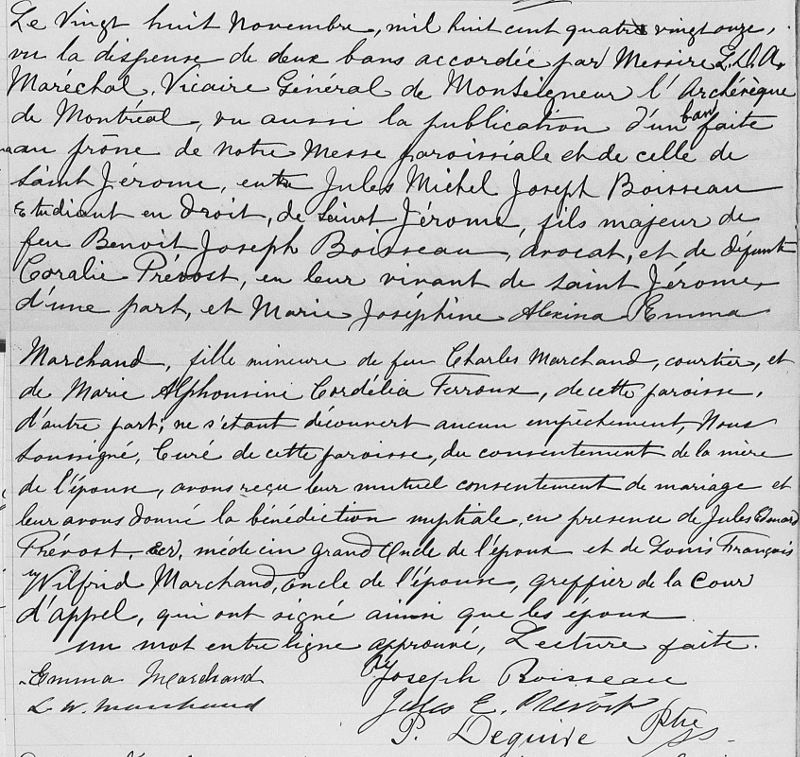 Le Vingt huit Novembre, mil huit cent quatre vingt onze,
vu la dispense de deux bans accordée par Messire L.D.A.
Maréchal, Vicaire Général de Monseigneur l'Archevêque
de Montréal, vu aussi la publication d'un ban faite
au prône de notre Messe paroissiale et de celle de
Saint Jérome, entre Jules Michel Joseph Boisseau
Etudiant en Droit, de Saint Jérome, fils majeur de
feu Benoit Joseph Boisseau, avocat, et de défunte
Coralie Prévost, en leur vivant de Saint Jérome,
d'une part, et Marie Joséphine Alexina Emma
Marchand, fille mineure de feu Charles Marchand, courtier, et
de Marie Alphonsine Cordélia Terroux, de cette paroisse,
d'autre part; ne s'étant découvert aucun empêchement, Nous
Soussigné, Curé de cette paroisse, du consentement de la mère
de l'épouse, avons reçu leur mutuel consentement de mariage et
leur avons donné la bénédiction nuptiale, en présence de Jules Edmond
Prévost, Ecr, médecin grand Oncle de l'époux et de Louis François
Wilfrid Marchand, Oncle de l'épouse, greffier de la Cour
d'appel, qui ont signé ainsi que les époux
un mot entre ligne approuvé, Lecture faite.
Emma Marchand
Joseph Boisseau
L. W. Marchand
Jules E. Prévost
P. Deguire Ptre
SS.